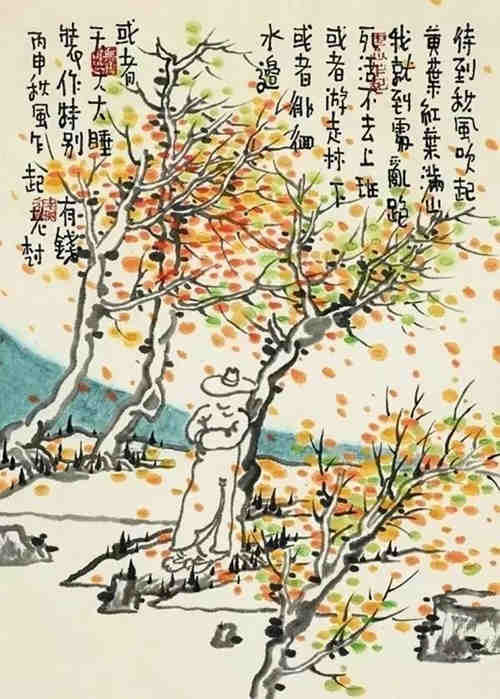 待到秋风吹起
黄葉紅葉满山
我就到處亂跑
死活不去上班
或者游走林下
或者徘徊
水邊
或者
大睡
装作特别有錢
丙申秋风乍起 老树